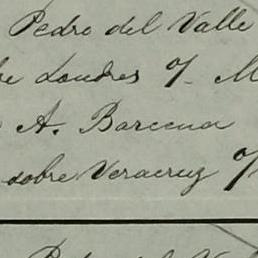 Pedro del Valle
Londres %
A. Barcena
sobre Veracruz %